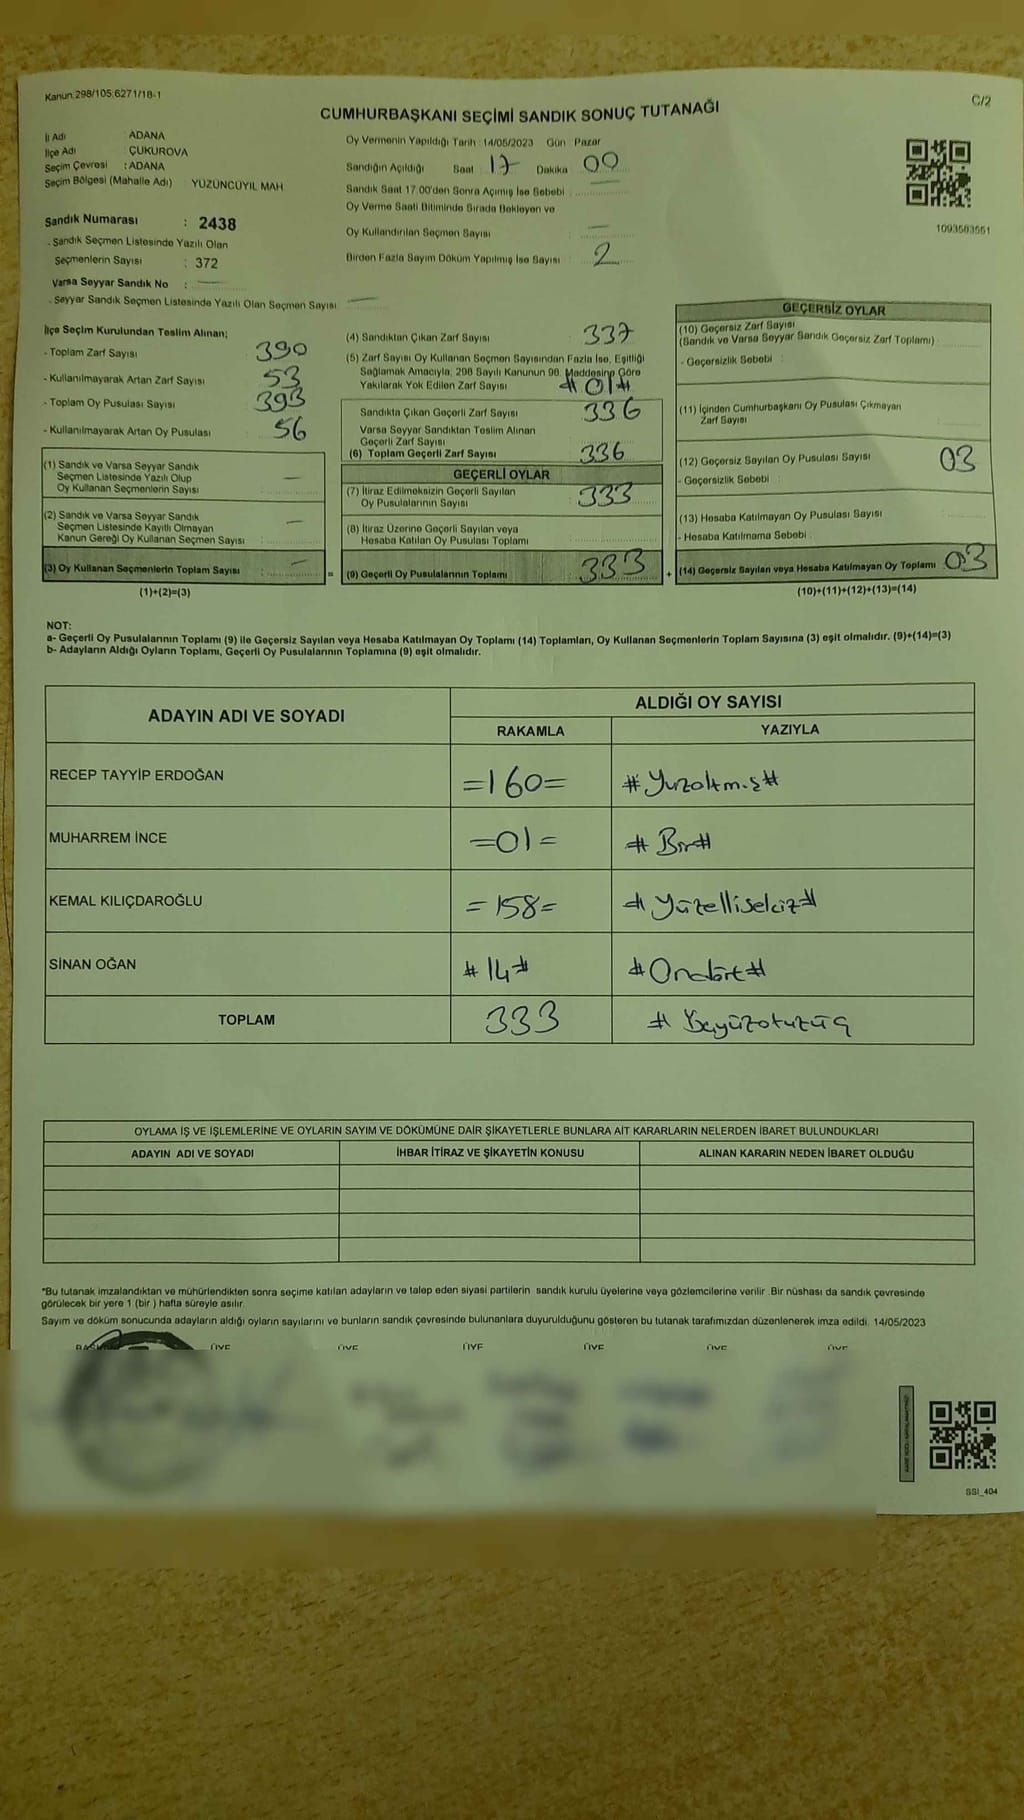 Kanun:298/105,6271/18-1
C/2
CUMHURBAŞKANI SEÇİMİ SANDIK SONUÇ TUTANAĞI
İl Adı ADANA
İlçe Adı ÇUKUROVA
Seçim Çevresi : ADANA
Seçim Bölgesi (Mahalle Adı) YÜZÜNCÜYIL MAH
Sandık Numarası : 2438
. Sandık Seçmen Listesinde Yazılı Olan
Seçmenlerin Sayısı : 372
Varsa Seyyar Sandık No : —
. Seyyar Sandık Seçmen Listesinde Yazılı Olan Seçmen Sayısı —
Oy Vermenin Yapıldığı Tarih : 14/05/2023 Gün Pazar
Sandığın Açıldığı Saat 17 Dakika 00
Sandık Saat 17:00'den Sonra Açımış İse Sebebi —
Oy Verme Saati Bitiminde Sırada Bekleyen ve
Oy Kullandırılan Seçmen Sayısı : —
Birden Fazla Sayım Döküm Yapılmış İse Sayısı : 2
1093503551
İlçe Seçim Kurulundan Teslim Alınan;
- Toplam Zarf Sayısı : 390
- Kullanılmayarak Artan Zarf Sayısı : 53
- Toplam Oy Pusulası Sayısı : 393
- Kullanılmayarak Artan Oy Pusulası : 56
(1) Sandık ve Varsa Seyyar Sandık
Seçmen Listesinde Yazılı Olup
Oy Kullanan Seçmenlerin Sayısı —
(2) Sandık ve Varsa Seyyar Sandık
Seçmen Listesinde Kayıtlı Olmayan
Kanun Gereği Oy Kullanan Seçmen Sayısı : —
(3) Oy Kullanan Seçmenlerin Toplam Sayısı : —
(1)+(2)=(3)
(4) Sandıktan Çıkan Zarf Sayısı : 337
(5) Zarf Sayısı Oy Kullanan Seçmen Sayısından Fazla İse, Eşitliği
Sağlamak Amacıyla, 298 Sayılı Kanunun 98. Maddesine Göre
Yakılarak Yok Edilen Zarf Sayısı # 01#
Sandıkta Çıkan Geçerli Zarf Sayısı : 336
Varsa Seyyar Sandıktan Teslim Alınan
Geçerli Zarf Sayısı
(6) Toplam Geçerli Zarf Sayısı : 336
GEÇERLİ OYLAR
(7) İtiraz Edilmeksizin Geçerli Sayılan
Oy Pusulalarının Sayısı : 333
(8) İtiraz Üzerine Geçerli Sayılan veya
Hesaba Katılan Oy Pusulası Toplamı
= (9) Geçerli Oy Pusulalarının Toplamı : 333
GEÇERSİZ OYLAR
(10) Geçersiz Zarf Sayısı
(Sandık ve Varsa Seyyar Sandık Geçersiz Zarf Toplamı) :
- Geçersizlik Sebebi :
(11) İçinden Cumhurbaşkanı Oy Pusulası Çıkmayan
Zarf Sayısı
(12) Geçersiz Sayılan Oy Pusulası Sayısı : 03
- Geçersizlik Sebebi :
(13) Hesaba Katılmayan Oy Pusulası Sayısı :
- Hesaba Katılmama Sebebi :
+ (14) Geçersiz Sayılan veya Hesaba Katılmayan Oy Toplamı : 03
(10)+(11)+(12)+(13)=(14)
NOT:
a- Geçerli Oy Pusulalarının Toplamı (9) ile Geçersiz Sayılan veya Hesaba Katılmayan Oy Toplamı (14) Toplamları, Oy Kullanan Seçmenlerin Toplam Sayısına (3) eşit olmalıdır. (9)+(14)=(3)
b- Adayların Aldığı Oyların Toplamı, Geçerli Oy Pusulalarının Toplamına (9) eşit olmalıdır.
ADAYIN ADI VE SOYADI
ALDIĞI OY SAYISI
RAKAMLA YAZIYLA
RECEP TAYYİP ERDOĞAN =160= #Yuzaltmış#
MUHARREM İNCE =01= # Bir#
KEMAL KILIÇDAROĞLU =158= # Yüzellisekiz#
SİNAN OĞAN # 14# #Ondört#
TOPLAM 333 #
OYLAMA İŞ VE İŞLEMLERİNE VE OYLARIN SAYIM VE DÖKÜMÜNE DAİR ŞİKAYETLERLE BUNLARA AİT KARARLARIN NELERDEN İBARET BULUNDUKLARI
ADAYIN ADI VE SOYADI İHBAR İTİRAZ VE ŞİKAYETİN KONUSU ALINAN KARARIN NEDEN İBARET OLDUĞU
*Bu tutanak imzalandıktan ve mühürlendikten sonra seçime katılan adayların ve talep eden siyasi partilerin sandık kurulu üyelerine veya gözlemcilerine verilir .Bir nüshası da sandık çevresinde
görülecek bir yere 1 (bir ) hafta süreyle asılır.
Sayım ve döküm sonucunda adayların aldığı oyların sayılarını ve bunların sandık çevresinde bulunanlara duyurulduğunu gösteren bu tutanak tarafımızdan düzenlenerek imza edildi. 14/05/2023
ÜYE ÜYE ÜYE ÜYE ÜYE ÜYE
SSI_404